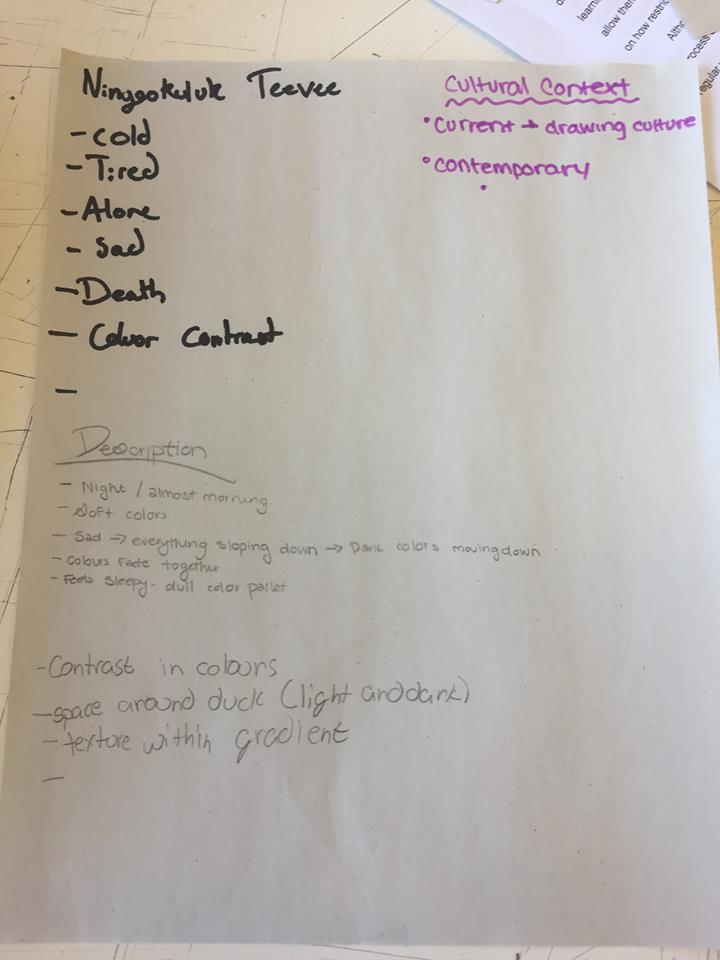 Ningeokuluk Teevee
- cold
- Tired
- Alone
- Sad
- Death
- Colour Contrast
-
Cultural Context
• Current → drawing culture
• contemporary
•
Description
- Night / almost morning
- Soft colors
- Sad → everything sloping down → Dark colors moving down
- Colours fade together
- Feels sleepy - dull color pallet
- Contrast in colours
- space around duck (light and dark)
- texture within gradient
-
learni
allow ther
on how restric
Altho
rocess
regular